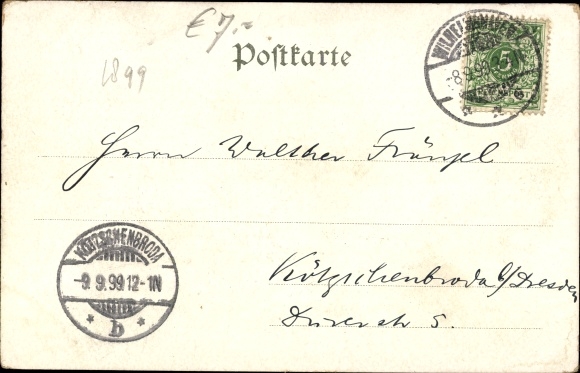 € 7,-
Postkarte
1899
WILHELMSHAVEN
8.9.99
5
Herrn Walther Fränzel
KÖTZSCHENBRODA
-9.9.99 12-1N
* b *
Kötzschenbroda b/Dresden
Dürerstr 5.